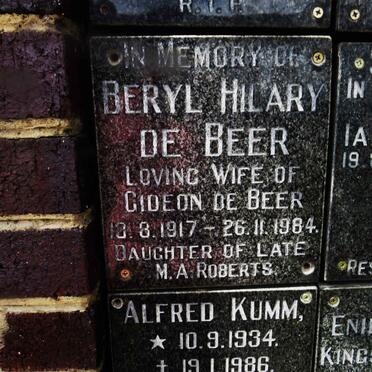 R.I.P.
IN MEMORY OF
BERYL HILARY
DE BEER
LOVING WIFE OF
GIDEON DE BEER
13.8.1917 - 26.11.1984.
DAUGHTER OF LATE
M.A. ROBERTS.
ALFRED KUMM,
★ 10.9.1934.
† 19.1.1986.
IN